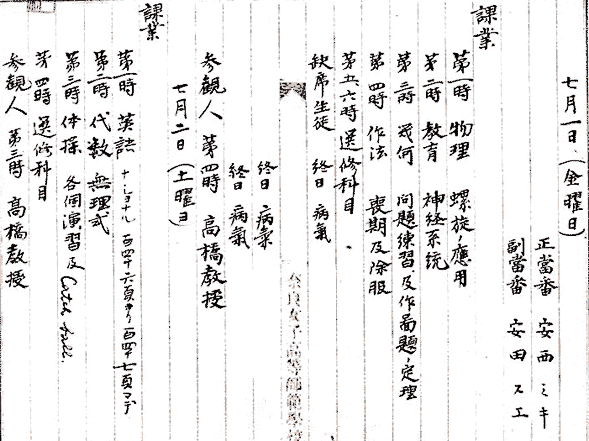 七月一日、(金曜日)
正當番 安西ミキ
副當番 安田スエ
課業
第一時 物理 螺旋ノ應用
第二時 教育 神経系統
第三時 幾何 問題練習及作圖題ノ定理
第四時 作法 喪期及除服
第五、六時 選修科目
欠席生徒 終日 病氣
終日 病氣
終日 病氣
参觀人 第四時 高橋教授
七月二日(土曜日)
課業
第一時 英語 百四十六頁ヨリ百四十七頁マデ
第二時 代数 無理式
第三時 体操 各個演習及 Catch ball.
第四時 選修科目
参觀人 第三時 高橋教授
奈良女子高等師範學校